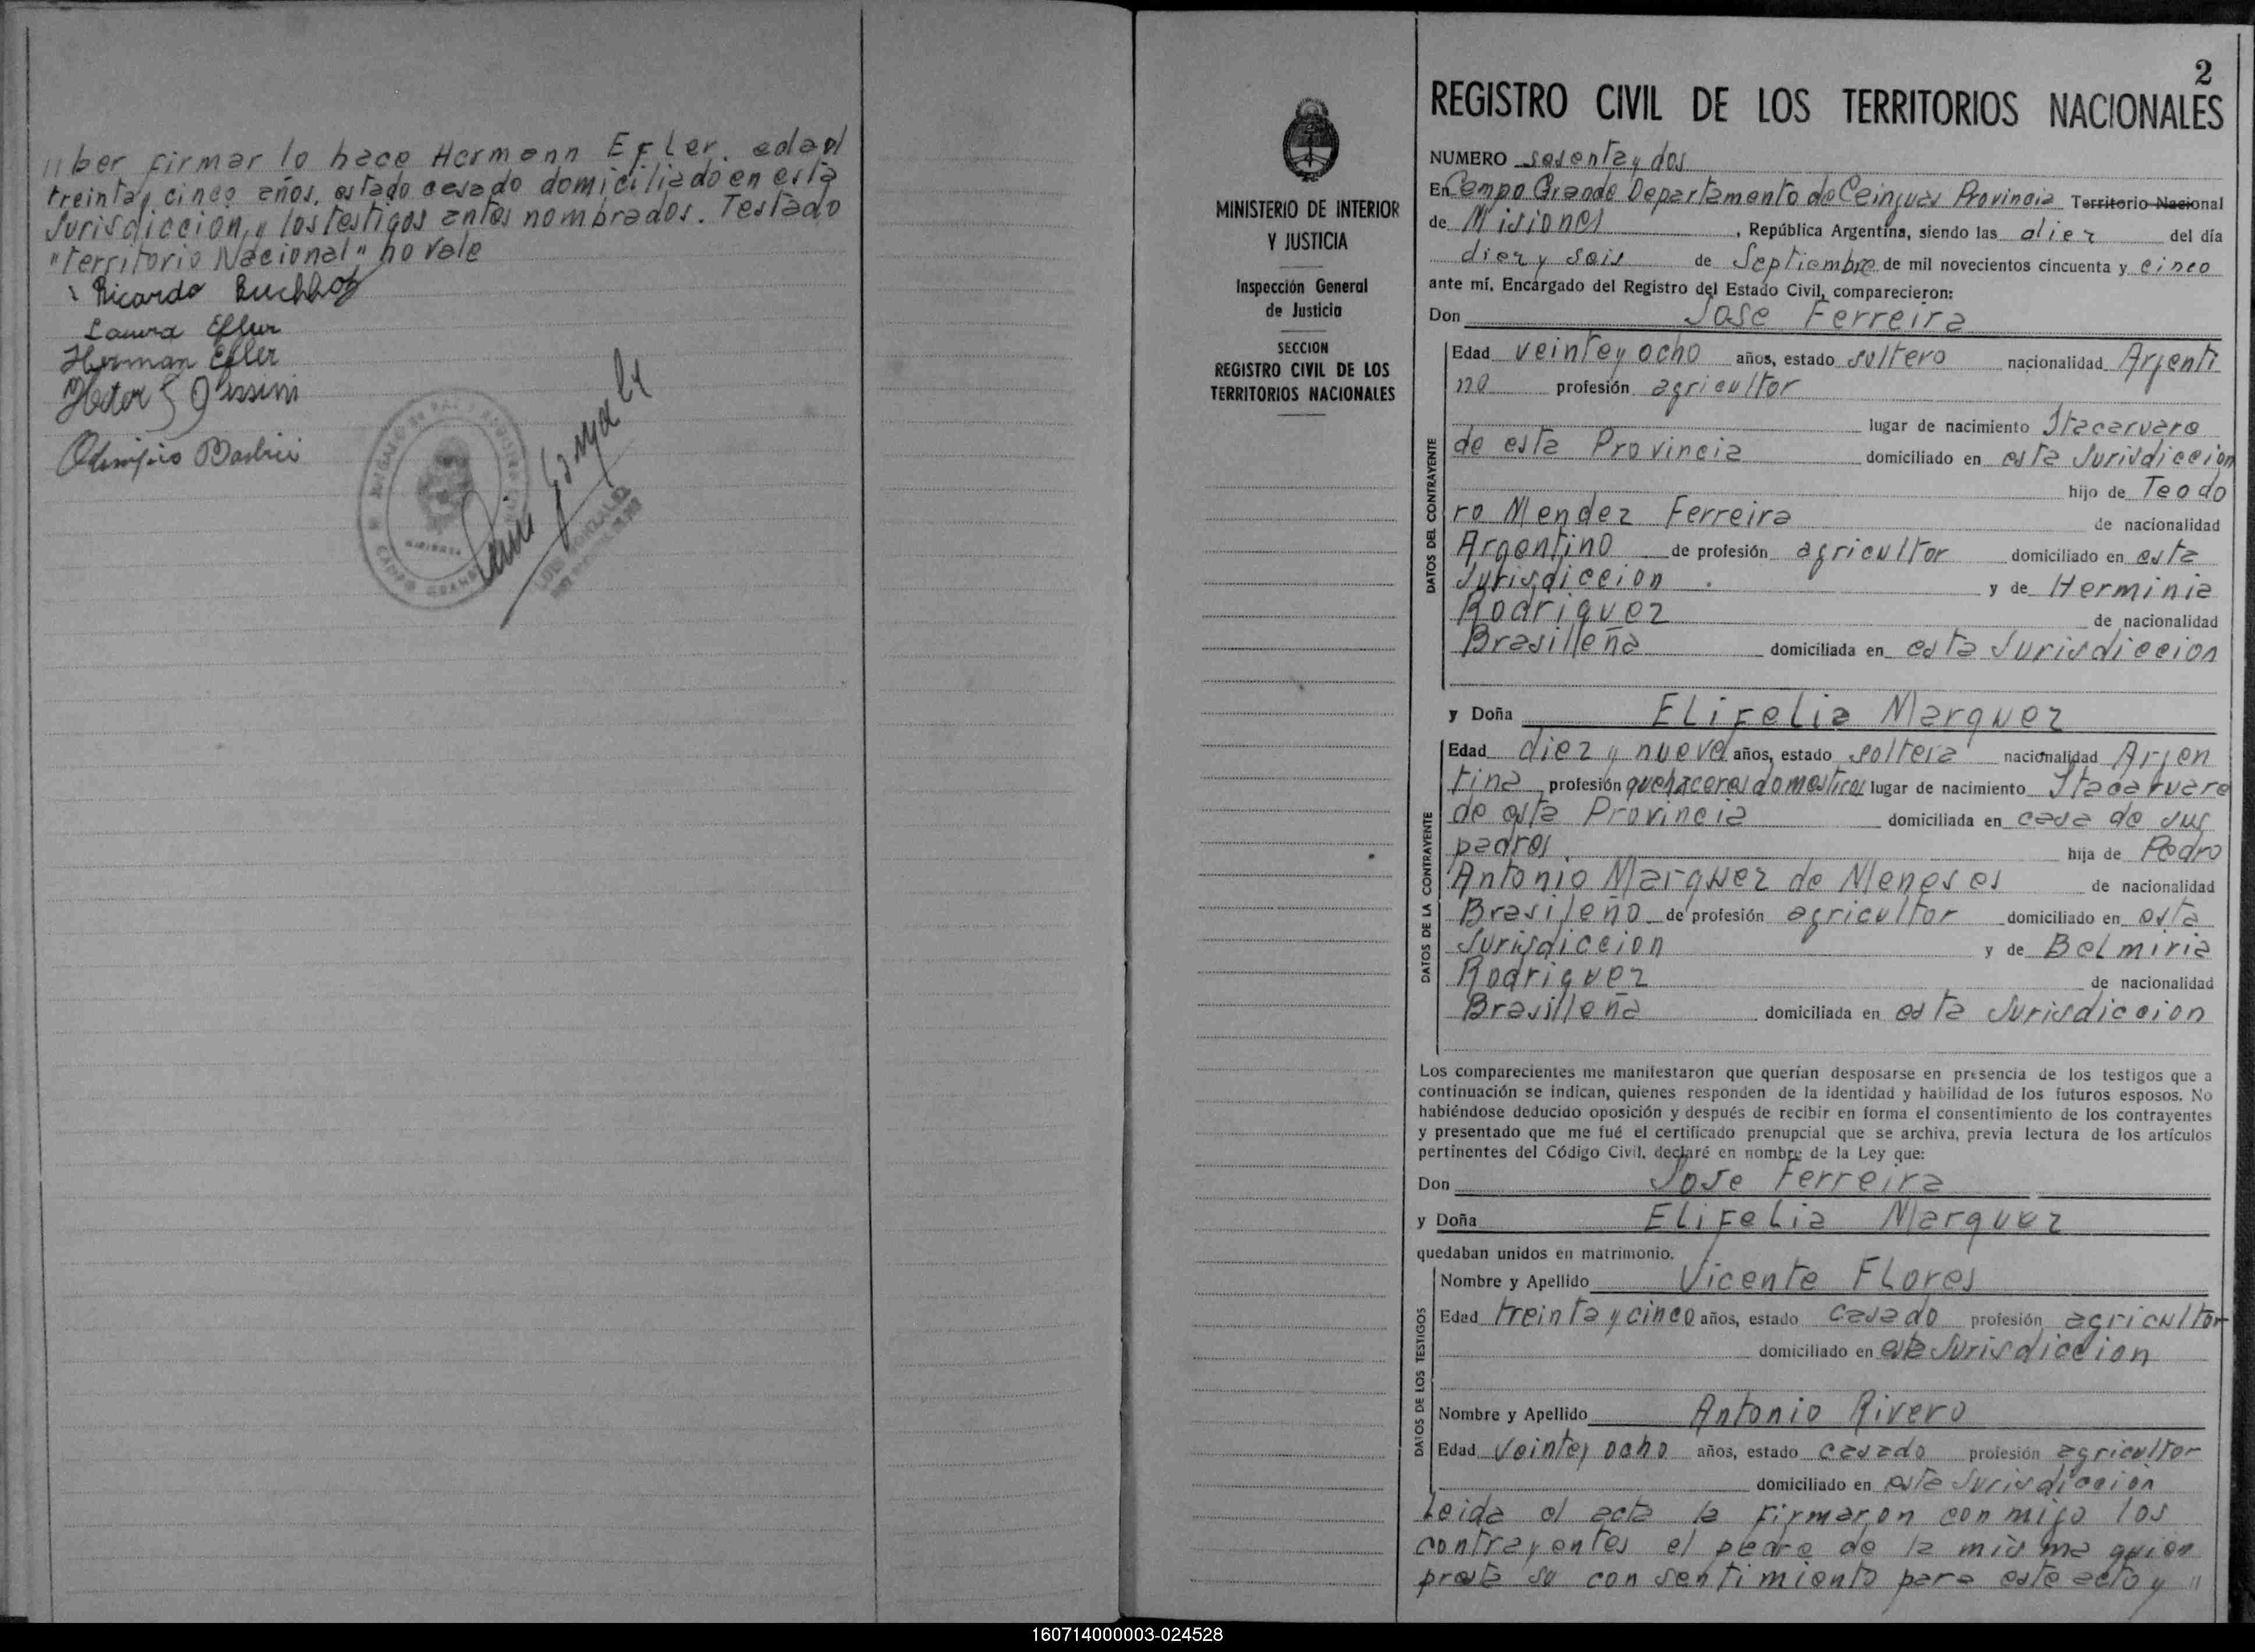 "ber firmar lo hace Hermann Efler. edad
treinta y cinco años, estado casado domiciliado en esta
Jurisdiccion, y los testigos antes nombrados. Testado
"Territorio Nacional" no vale
Ricardo Buchholz
Laura Efler
Herman Efler
Hector
CAMPO GRANDE
MISIONES
LUIS GONZALEZ
2
REGISTRO CIVIL DE LOS TERRITORIOS NACIONALES
MINISTERIO DE INTERIOR
Y JUSTICIA
Inspección General
de Justicia
SECCION
REGISTRO CIVIL DE LOS
TERRITORIOS NACIONALES
NUMERO sesenta y dos
En Campo Grande Departamento de Cainguas Provincia Territorio Nacional
de Misiones, República Argentina, siendo las diez del día
diez y seis de Septiembre de mil novecientos cincuenta y cinco
ante mí, Encargado del Registro del Estado Civil, comparecieron:
Don Jose Ferreira
DATOS DEL CONTRAYENTE
Edad veinte y ocho años, estado soltero nacionalidad Argenti
no profesión agricultor
lugar de nacimiento Itacaruare
de esta Provincia domiciliado en esta Jurisdiccion
hijo de Teodo
ro Mendez Ferreira de nacionalidad
Argentino de profesión agricultor domiciliado en esta
Jurisdiccion y de Herminia
Rodriguez de nacionalidad
Brasilleña domiciliada en esta Jurisdiccion
y Doña Elifelia Marquez
DATOS DE LA CONTRAYENTE
Edad diez y nueve años, estado soltera nacionalidad Arjen
tina profesión quehaceres domesticos lugar de nacimiento Itacaruare
de esta Provincia domiciliada en casa de sus
padres hija de Pedro
Antonio Marquez de Meneses de nacionalidad
Brasileño de profesión agricultor domiciliado en esta
Jurisdiccion y de Belmiria
Rodriguez de nacionalidad
Brasilleña domiciliada en esta Jurisdiccion
Los comparecientes me manifestaron que querían desposarse en presencia de los testigos que a
continuación se indican, quienes responden de la identidad y habilidad de los futuros esposos. No
habiéndose deducido oposición y después de recibir en forma el consentimiento de los contrayentes
y presentado que me fué el certificado prenupcial que se archiva, previa lectura de los artículos
pertinentes del Código Civil, declaré en nombre de la Ley que:
Don Jose Ferreira
y Doña Elifelia Marquez
quedaban unidos en matrimonio.
DATOS DE LOS TESTIGOS
Nombre y Apellido Vicente Flores
Edad treinta y cinco años, estado casado profesión agricultor
domiciliado en esta Jurisdiccion
Nombre y Apellido Antonio Rivero
Edad veinte y ocho años, estado casado profesión agricultor
domiciliado en esta Jurisdiccion
Leida el acta la firmaron conmigo los
contrayentes el padre de la misma quien
presta su consentimiento para este acto y "
160714000003-024528